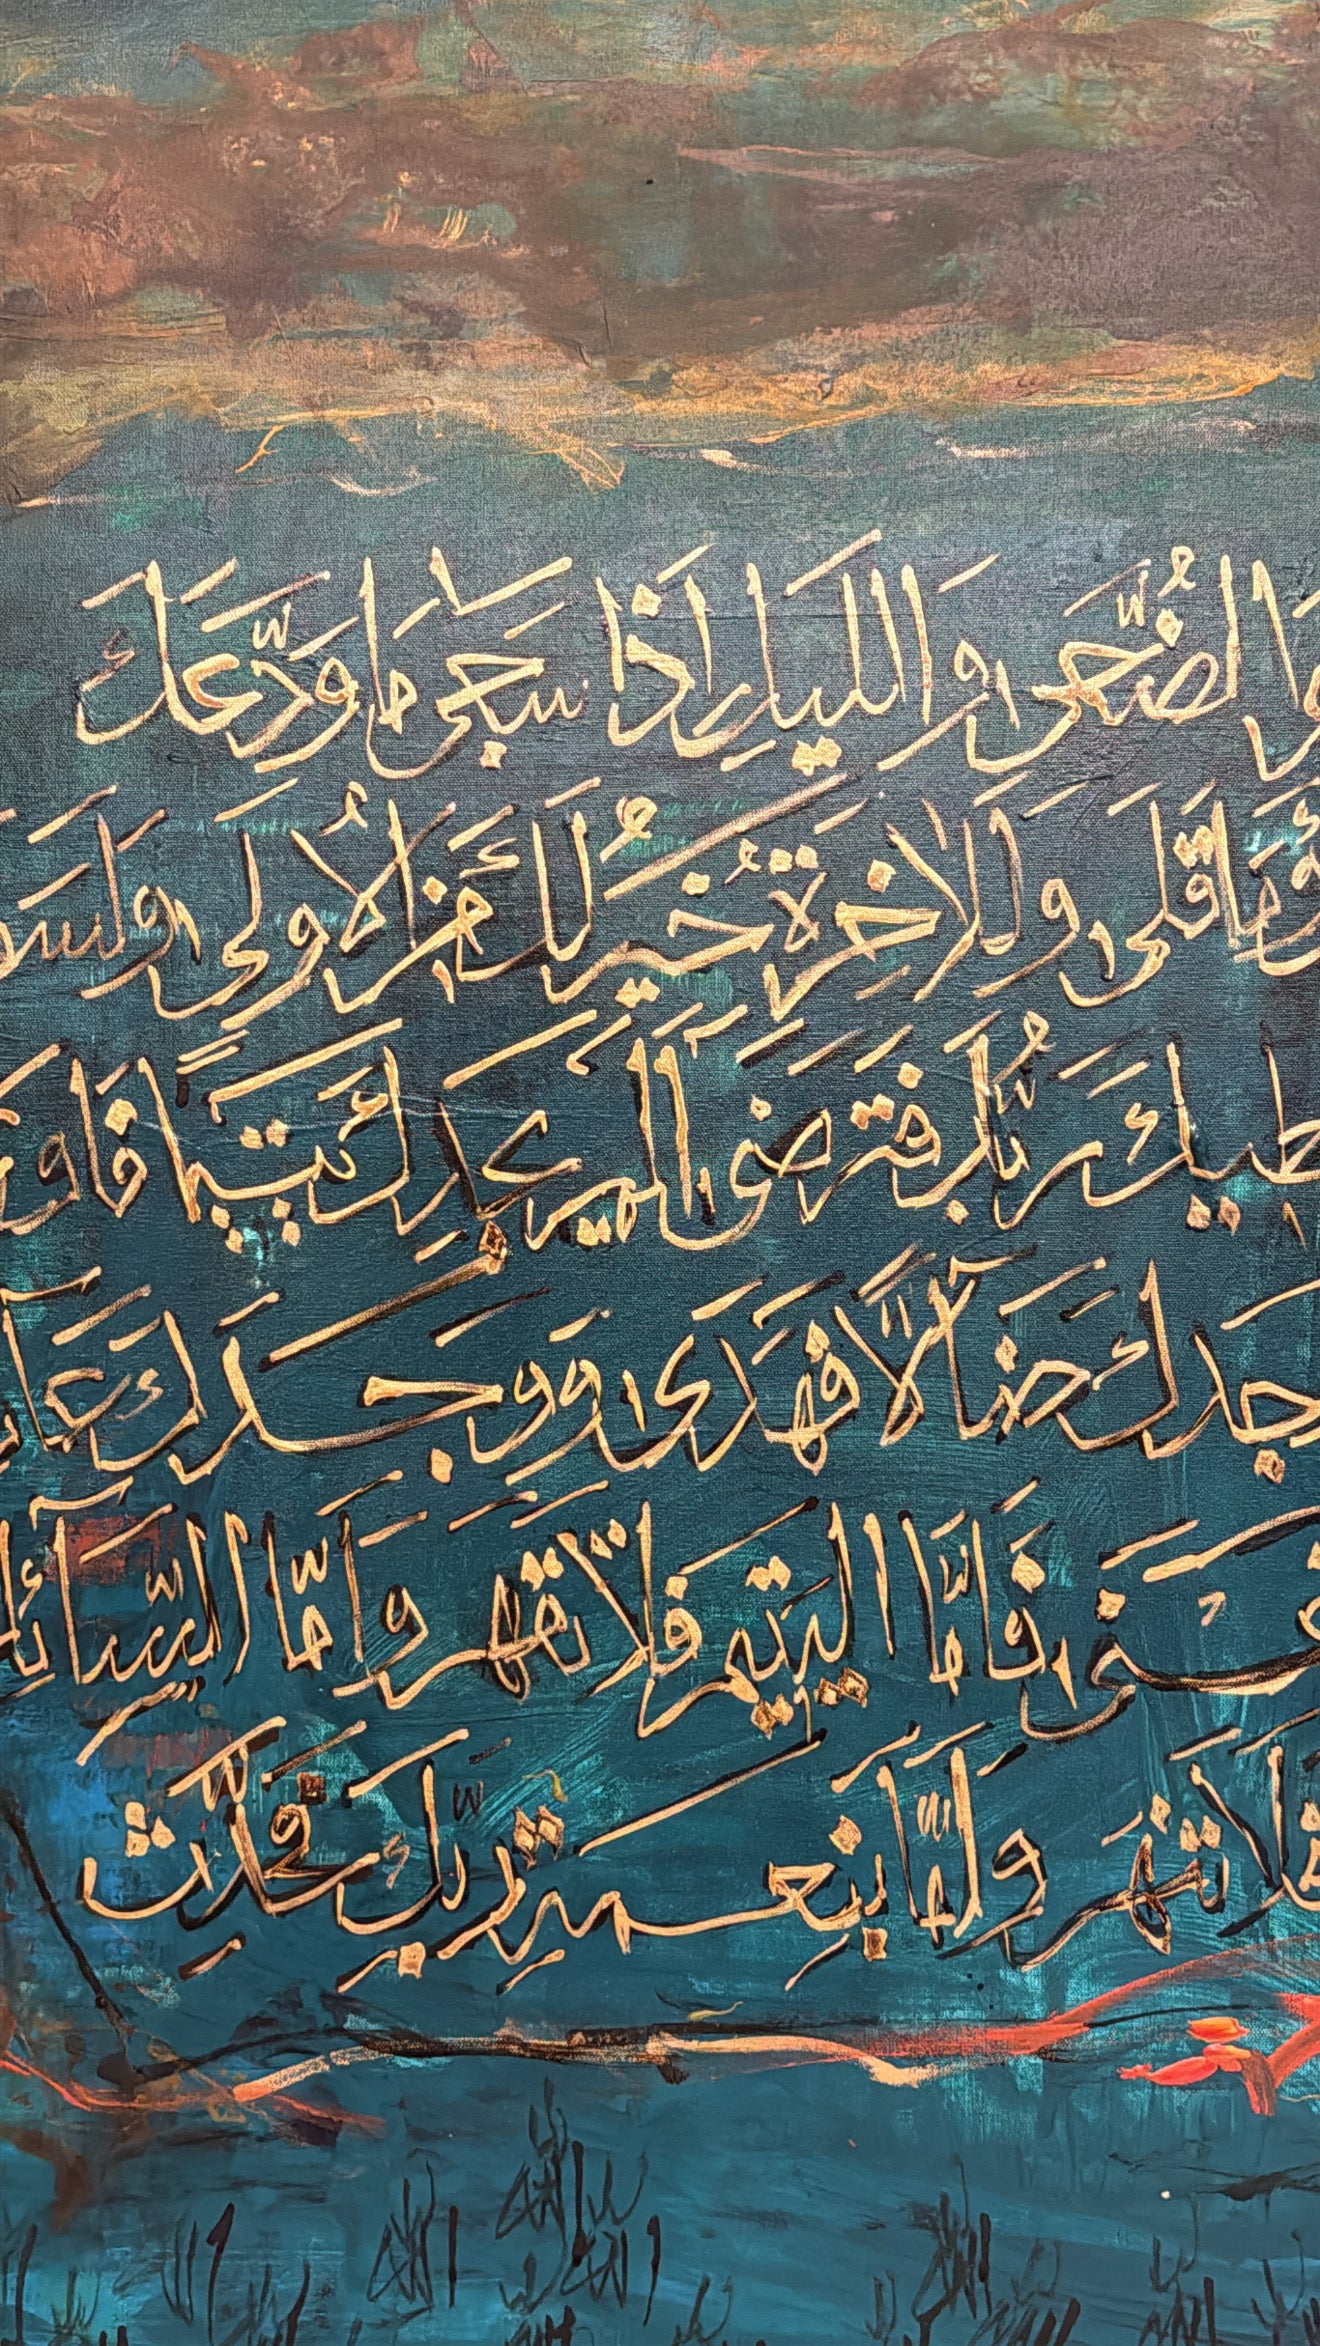 وَالضُّحَى وَاللَّيْلِ إِذَا سَجَى مَا وَدَّعَكَ
وَمَا قَلَى وَلَلْآخِرَةُ خَيْرٌ لَكَ مِنَ الْأُولَى وَلَسَ
طِيكَ رَبُّكَ فَتَرْضَى أَلَمْ يَجِدْكَ يَتِيمًا فَآوَى
جَدَكَ ضَآلًّا فَهَدَى وَوَجَدَكَ عَآ
غْنَى فَأَمَّا الْيَتِيمَ فَلَا تَقْهَرْ وَأَمَّا السَّآئِلَ
فَلَا تَنْهَرْ وَأَمَّا بِنِعْمَةِ رَبِّكَ فَحَدِّثْ